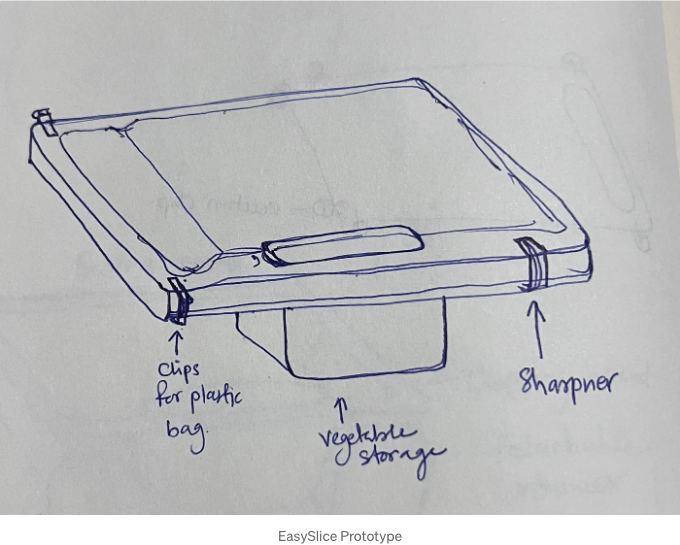 clips
for plastic
bag.
vegetable
storage
Sharpner
EasySlice Prototype